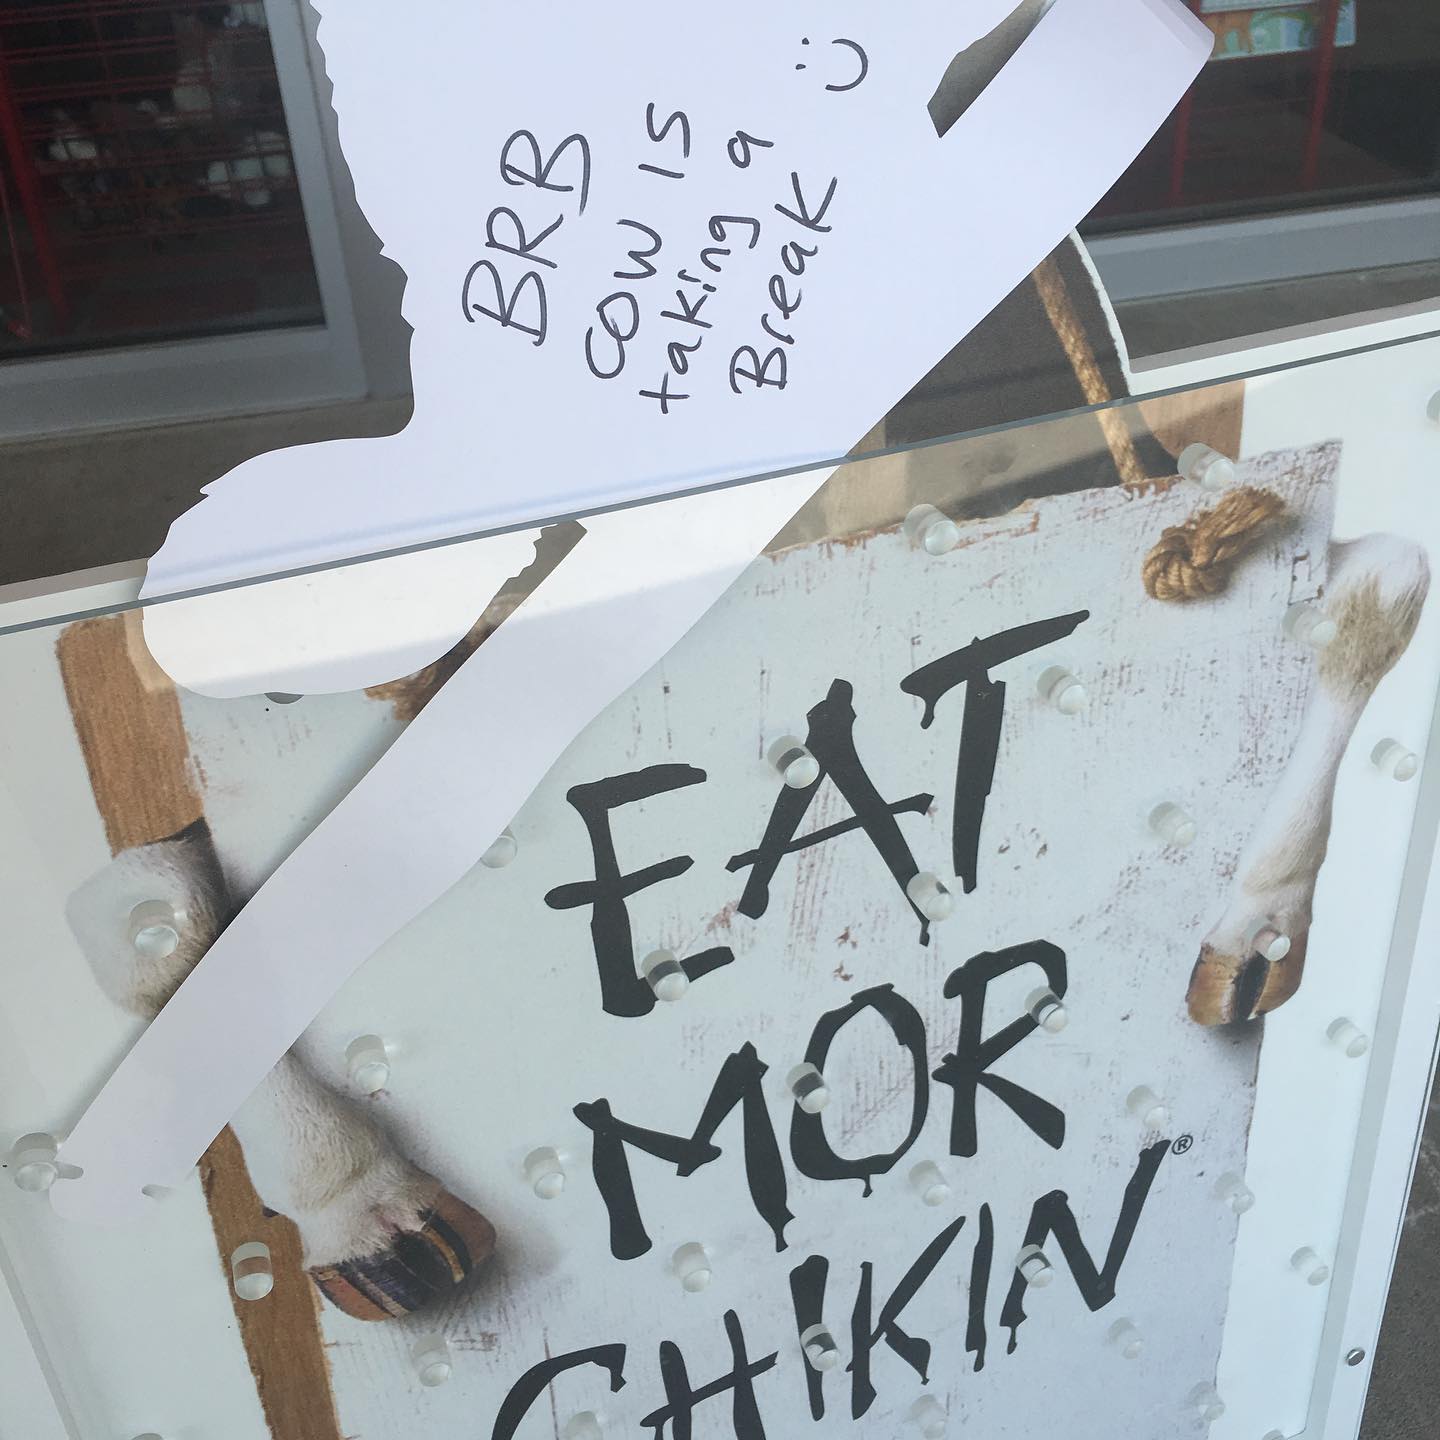 BRB
cow is
taking a
Break
:)
EAT
MOR
CHIKIN®